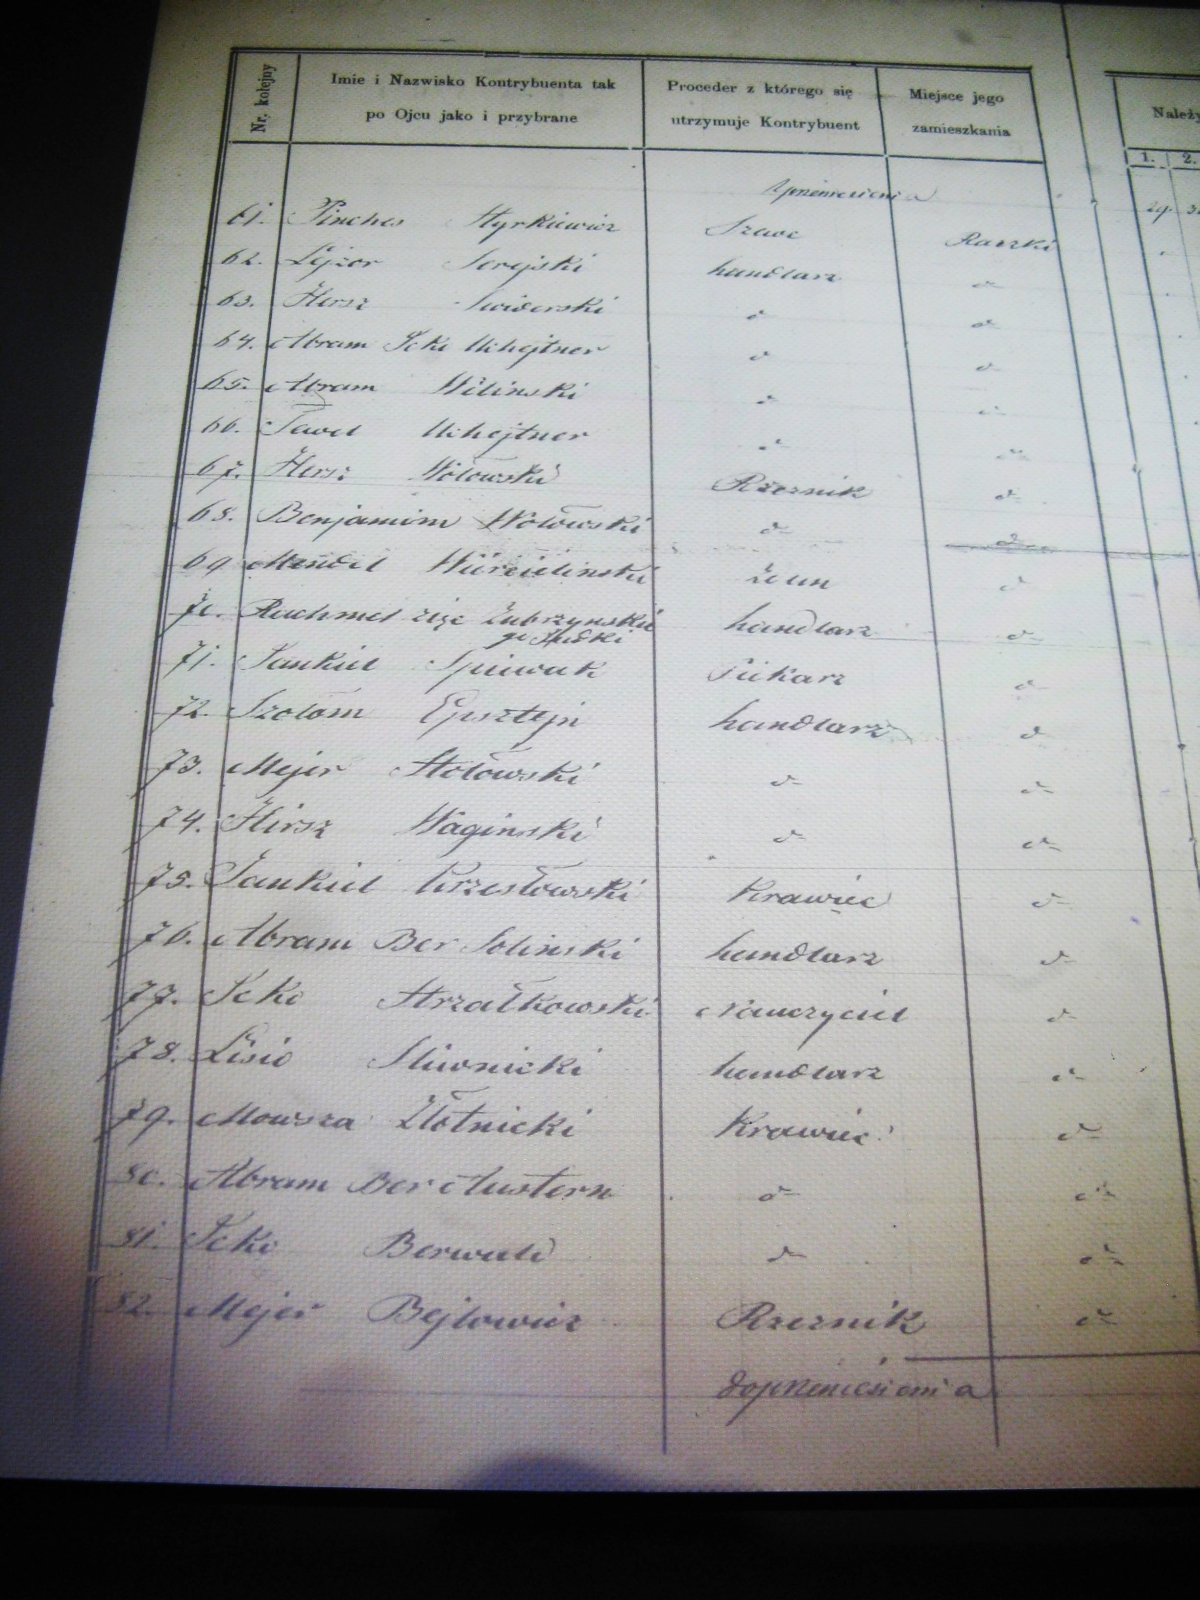 Nr. kolejny Imie i Nazwisko Kontrybuenta tak po Ojcu jako i przybrane Proceder z którego się utrzymuje Kontrybuent Miejsce jego zamieszkania Należy
1. 2.
zprzeniesienia
61. Pinches Styrkiewicz Szewc Raczki 29.
62. Lejzor Serejski handlarz d-
63. Hersz Swiderski d- d-
64. Abram Icko Uchejtner d- d-
65. Abram Wiliński d- d-
66. Uchejtner d- d-
67. Hersz Wołowski Rzeznik d-
68. Benjamim Wołowski d- d-
69 Mendel d-
70. Rachmel Zubrzynski handlarz d-
71. Jankiel Spiewak Piekarz d-
72. Szolom Epsztejn handlarz d-
73. Mejer Stołowski d- d-
74. Hirsz Waginski d- d-
75. Jankiel Krzesłowski Krawiec d-
76. Abram Ber Soliński handlarz d-
77. Icko Strzałkowski Nauczyciel d-
78. Śliwnicki handlarz d-
79. Mowsza Złotnicki Krawiec d-
80. Abram Ber Austern d- d-
81. Icko Berwald d- d-
82. Mejer Bejlowicz Rzeznik d-
do przeniesienia